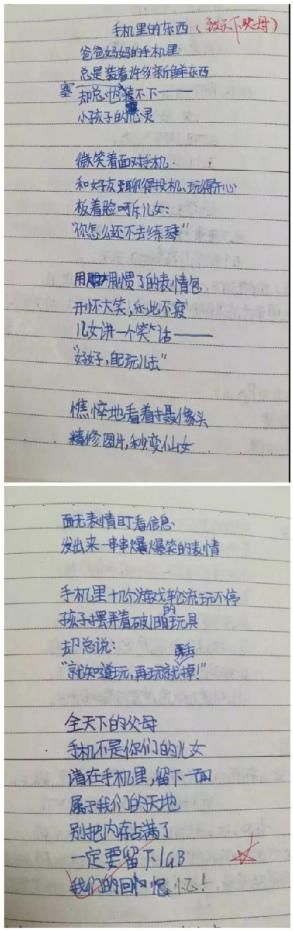 手机里的东西（致天下父母）
爸爸妈妈的手机里
总是装着许多新鲜东西
却总塞不下——
小孩子的心灵
微笑着面对手机
和好友聊得投机、玩得开心
板着脸呵斥儿女：
“你怎么还不去练琴”
用惯了的表情包
开怀大笑，乐此不疲
儿女讲一个笑话——
“好好，自己玩儿去”
憔悴地看着摄像头
精修图片，秒变仙女
面无表情盯着信息
发出来一串串爆笑的表情
手机里十几个游戏轮流玩不停
孩子摆弄着破旧的玩具
却总说：
“就知道玩，再玩就扔掉！”
全天下的父母
手机不是你们的儿女
请在手机里，留下一面
属于我们的天地
别把内存占满了
一定要留下1GB
我们的回忆！